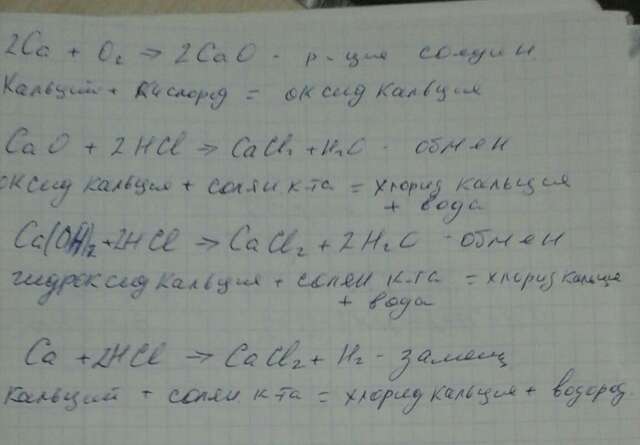 2Ca + O₂ → 2CaO - р-ция соедин
Кальций + кислород = оксид кальция
CaO + 2HCl → CaCl₂ + H₂O - обмен
оксид кальция + солян к-та = хлорид кальция
+ вода
Ca(OH)₂ + 2HCl → CaCl₂ + 2H₂O - обмен
гидроксид кальция + солян к-та = хлорид кальция
+ вода
Ca + 2HCl → CaCl₂ + H₂ - замещ
Кальций + солян к-та = хлорид кальция + водород